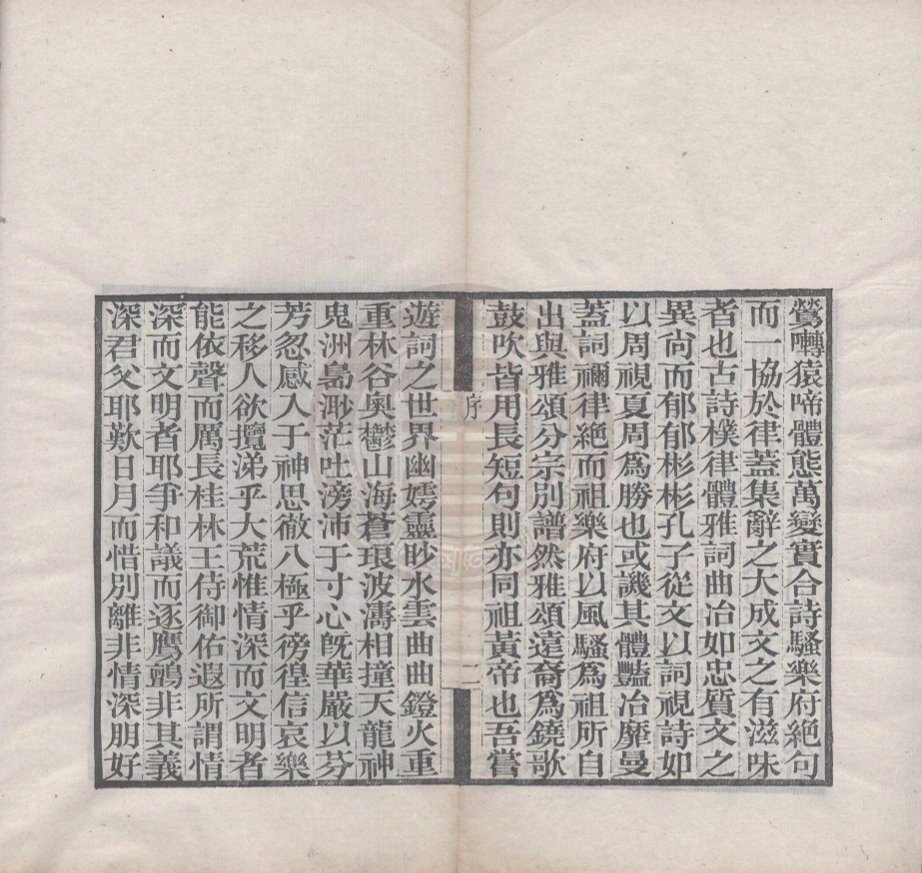 鶯囀猿啼體態萬變實合詩騷樂府絕句
而一協於律蓋集辭之大成文之有滋味
者也古詩樸律體雅詞曲冶如忠質文之
異尚而郁郁彬彬孔子從文以詞視詩如
以周視夏周爲勝也或譏其體豔冶靡曼
蓋詞禰律絕而祖樂府以風騷爲祖所自
出與雅頌分宗別譜然雅頌遠裔爲鐃歌
鼓吹皆用長短句則亦同祖黃帝也吾嘗
序
二
遊詞之世界幽嫮靈眇水雲曲曲鐙火重
重林谷奧鬱山海蒼琅波濤相撞天龍神
鬼洲島渺茫吐滂沛于寸心旣華嚴以芬
芳忽感人于神思徹八極乎徬徨信哀樂
之移人欲攬涕乎大荒惟情深而文明者
能依聲而厲長桂林王侍御佑遐所謂情
深而文明者耶爭和議而逐鷹鸇非其義
深君父耶歎日月而惜別離非情深朋好